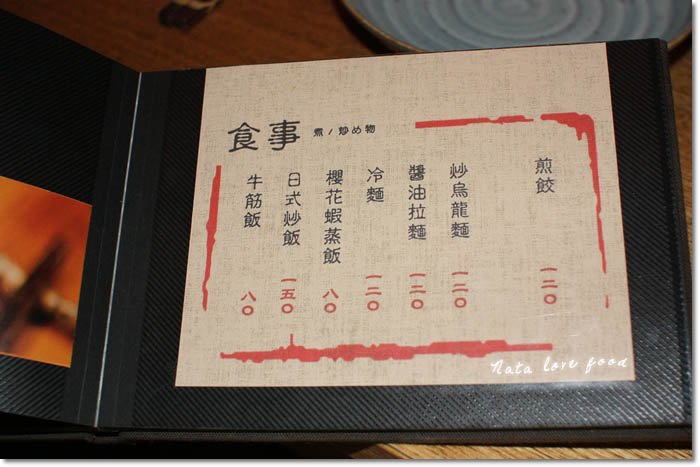 食事 煮/炒め物
煎餃 一二〇
炒烏龍麵 一二〇
醬油拉麵 一二〇
冷麵 一二〇
櫻花蝦蒸飯 八〇
日式炒飯 一五〇
牛筋飯 八〇
Nata love food